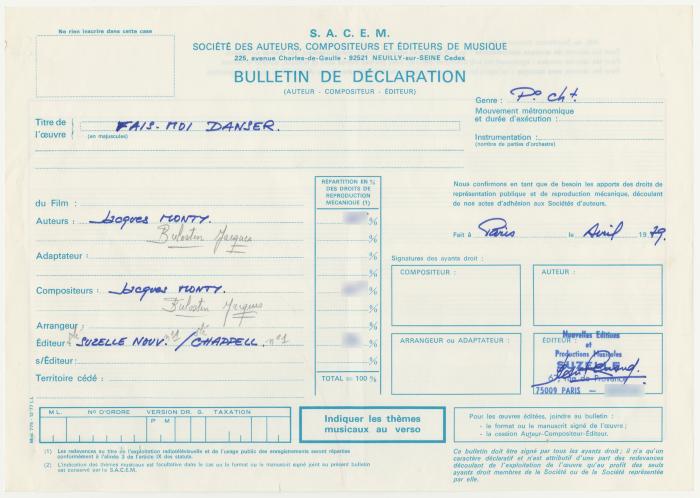 Ne rien inscrire dans cette case
S. A. C. E. M.
SOCIÉTÉ DES AUTEURS, COMPOSITEURS ET ÉDITEURS DE MUSIQUE
225, avenue Charles-de-Gaulle - 92521 NEUILLY-sur-SEINE Cedex
BULLETIN DE DÉCLARATION
(AUTEUR - COMPOSITEUR - ÉDITEUR)
Genre : Po cht.
Mouvement métronomique
et durée d'exécution :
Instrumentation :
(nombre de parties d'orchestre)
Titre de l'œuvre
(en majuscules)
FAIS-MOI DANSER.
RÉPARTITION EN %
DES DROITS DE
REPRODUCTION
MÉCANIQUE (1)
Nous confirmons en tant que de besoin les apports des droits de
représentation publique et de reproduction mécanique, découlant
de nos actes d'adhésion aux Sociétés d'auteurs.
du Film :
Auteurs : Jacques MONTY. %
Bulostin Jacques
Fait à Paris le Avril 1979.
Adaptateur : %
Signatures des ayants droit :
Compositeurs : Jacques MONTY. %
Bulostin Jacques
COMPOSITEUR :
AUTEUR :
Arrangeur : %
Éditeur : SUZELLE NOUV. n°1 / CHAPPELL n°1 %
s/Éditeur : %
Territoire cédé :
TOTAL = 100 %
ARRANGEUR ou ADAPTATEUR :
ÉDITEUR :
Nouvelles Editions
et
Productions Musicales
SUZELLE
rue de Provence
75009 PARIS -
M L. N° D'ORDRE VERSION DR. G. TAXATION
P M
Indiquer les thèmes
musicaux au verso
Pour les œuvres éditées, joindre au bulletin :
- le format ou le manuscrit signé de l'œuvre ;
- la cession Auteur-Compositeur-Éditeur.
(1) Les redevances au titre de l'exploitation radiotélévisuelle et de l'usage public des enregistrements seront réparties
conformément à l'alinéa 3 de l'article IX des statuts.
(2) L'indication des thèmes musicaux est facultative dans le cas où le format ou le manuscrit signé joint au présent bulletin
est conservé par la S.A.C.E.M.
Ce bulletin doit être signé par tous les ayants droit ; il n'a qu'un
caractère déclaratif et n'est attributif d'une part des redevances
découlant de l'exploitation de l'œuvre qu'au profit des seuls
ayants droit membres de la Société ou de Société représentée
par elle.